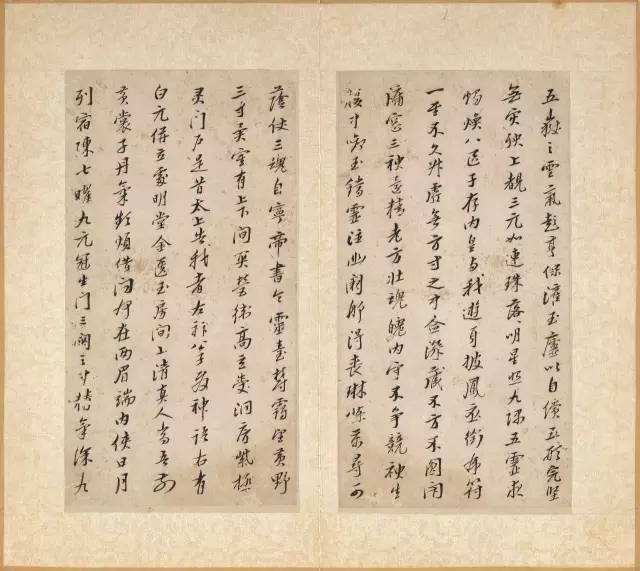 五嶽之雲氣彭亨保灌玉廬以自償五形完堅
無災殃上覩三元如連珠落明景照九隅五靈夜
燭煥八區子存內皇與我遊身披鳳衣銜虎符
一至不久升虛無方寸之中念深藏不方不圓閉
牖窗三神還精老方壯魂魄內守不爭競神生
腹中銜玉鐺靈注幽闕那得喪琳條萬尋可
蔭仗三魂自寧帝書命靈臺鬱靄望黃野
三寸異室有上下間關營衛高玄受洞房紫極
靈門戶是昔太上告我者左神公子發神語右有
白元併立處明堂金匱玉房間上清真人當吾前
黃裳子丹氣頻煩借問何在兩眉端內俠日月
列宿陳七曜九元冠生門三關之中精氣深九